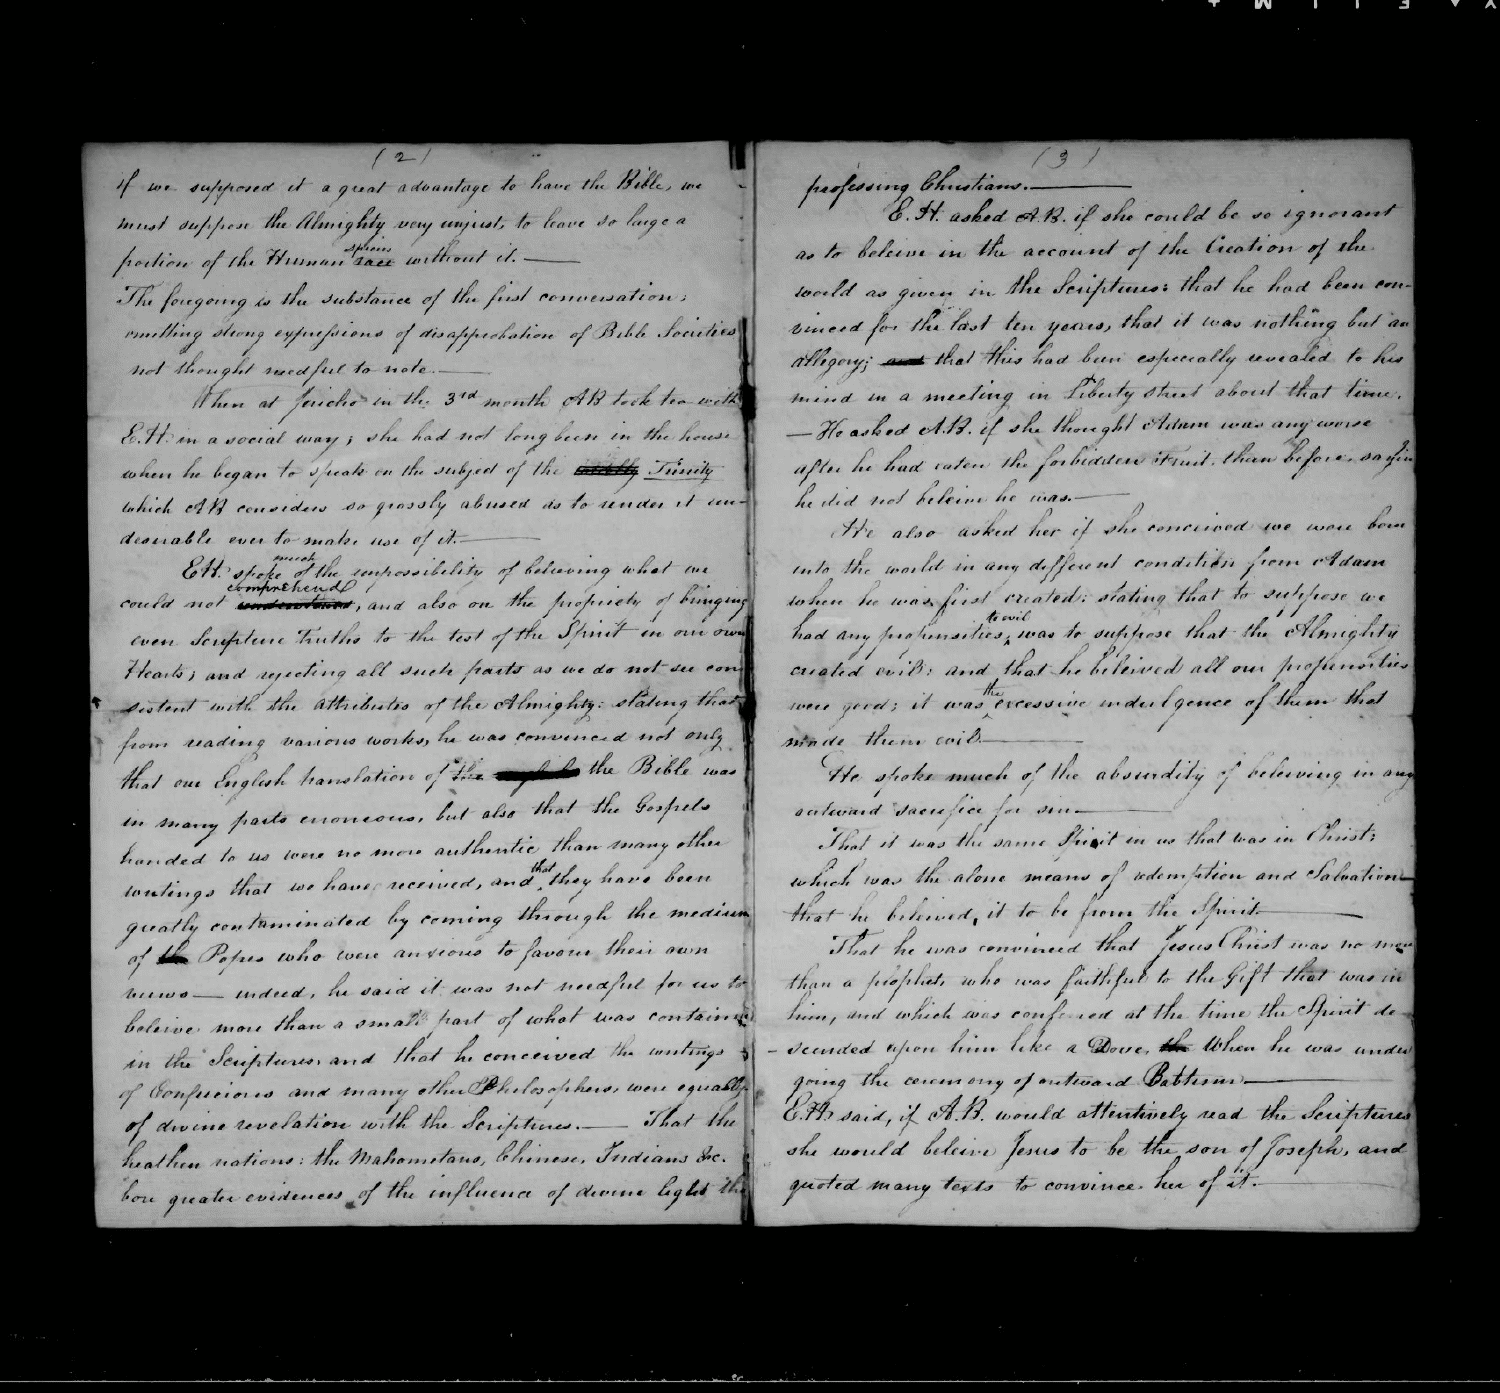 (2)
if we supposed it a great advantage to have the Bible, we
must suppose the Almighty very unjust, to leave so large a
portion of the Human species race without it.—
The foregoing is the substance of the first conversation;
omitting strong expressions of disapprobation of Bible Societies
not thought needful to note.—
When at Jericho in the 3rd month AB took tea with
E.H. in a social way; she had not long been in the house
when he began to speak on the subject of the Trinity
which AB considers so grossly abused as to render it un-
desirable ever to make use of it.—
E.H. spoke much of the impossibility of believing what we
could not comprehend, and also on the propriety of bringing
even Scripture Truths to the test of the Spirit in our own
Hearts; and rejecting all such parts as we do not see con-
sistent with the attributes of the Almighty: stating that
from reading various works, he was convinced not only
that our English translation of the the Bible was
in many parts erroneous, but also that the Gospels
handed to us were no more authentic than many other
writings that we have received, and that they have been
greatly contaminated by coming through the medium
of th Popes who were anxious to favour their own
views— indeed, he said it was not needful for us to
beleive more than a small part of what was contained
in the Scriptures, and that he conceived the writings
of Confucious and many other Philosophers, were equally
of divine revelation with the Scriptures.— That the
heathen nations: the Mahometans, Chinese, Indians &c.
bore greater evidences of the influence of divine light than
(3)
professing Christians.—
E.H. asked A.B. if she could be so ignorant
as to beleive in the account of the Creation of the
world as given in the Scriptures: that he had been con-
vinced for the last ten years, that it was nothing but an
allegory; and that this had been especially revealed to his
mind in a meeting in Liberty street about that time.
— He asked A.B. if she thought Adam was any worse
after he had eaten the forbidden Fruit, than before, saying
he did not beleive he was.—
He also asked her if she conceived we were born
into the world in any different condition from Adam
when he was first created: stating that to suppose we
had any propensities to evil, was to suppose that the Almighty
created evil: and that he beleived all our propensities
were good; it was the excessive indulgence of them that
made them evil.—
He spoke much of the absurdity of beleiving in any
outward sacrifice for sin.—
That it was the same Spirit in us that was in Christ;
which was the alone means of redemption and Salvation—
that he beleived, it to be from the Spirit.—
That he was convinced that Jesus Christ was no more
than a prophet, who was faithful to the Gift that was in
him, and which was conferred at the time the Spirit de-
scended upon him like a Dove, the When he was under
going the ceremony of outward Babtism—
E.H. said, if A.B. would attentively read the Scriptures
she would beleive Jesus to be the son of Joseph, and
quoted many texts to convince her of it.—